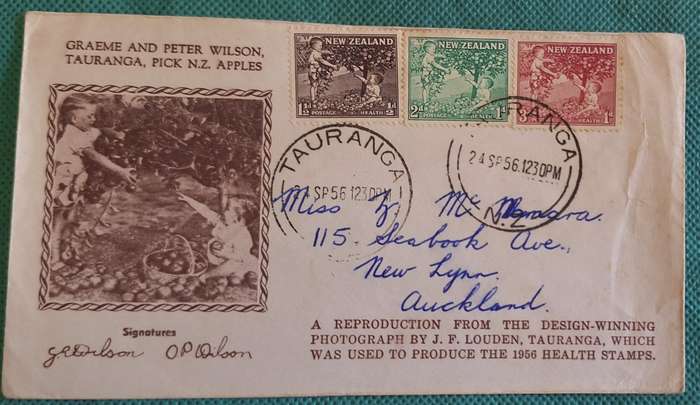 GRAEME AND PETER WILSON,
TAURANGA, PICK N.Z. APPLES
NEW ZEALAND
1½d ½d
POSTAGE HEALTH
NEW ZEALAND
2d 1d
POSTAGE HEALTH
NEW ZEALAND
3d 1d
HEALTH
TAURANGA
SP 56 1230PM
TAURANGA
24 SP 56 1230PM
N.Z
Miss Z. Mc
115. Seabook Ave.,
New Lynn.
Auckland.
Signatures
G R Wilson O P Wilson
A REPRODUCTION FROM THE DESIGN-WINNING
PHOTOGRAPH BY J. F. LOUDEN, TAURANGA, WHICH
WAS USED TO PRODUCE THE 1956 HEALTH STAMPS.